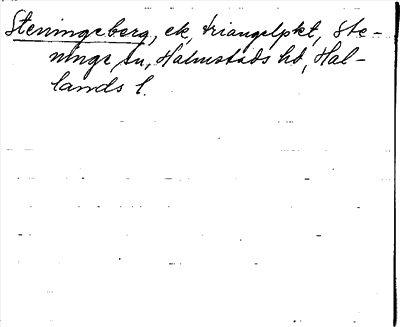 Steningeberg, ek, triangelpkt, Ste-
ninge sn, Halmstads hd, Hal-
lands l.